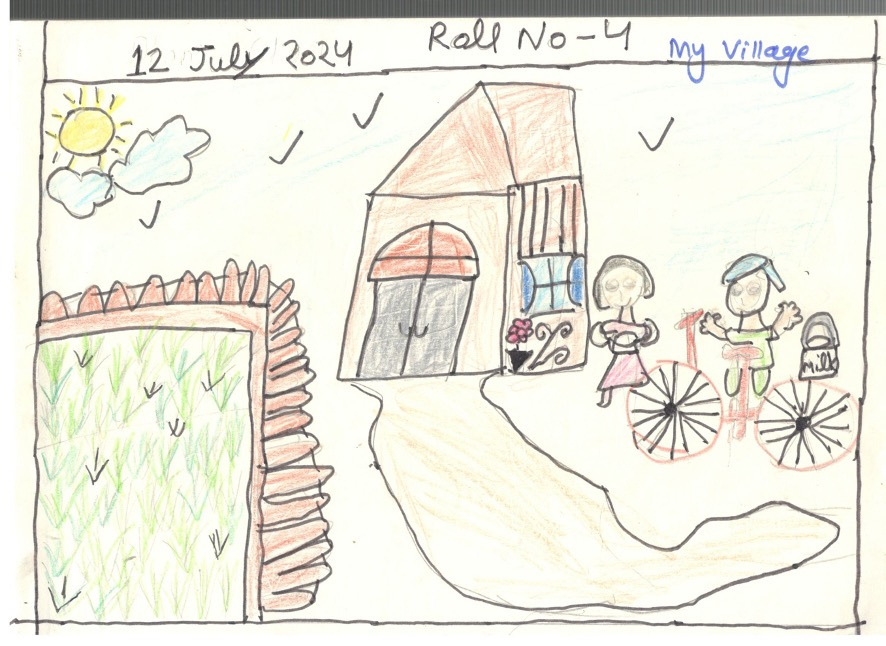 12 July 2024 Roll No-4 My Village
Milk